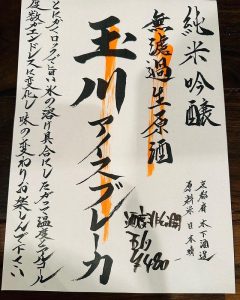 純米吟醸
無濾過生原酒
玉川アイスブレーカ
京都府 木下酒造
原料米 日本晴
¥480
とにかくロックで旨い氷の溶け具合にしたがって温度とアルコール
度数がエンドレスに変化し味の変わりお楽しみ下さい